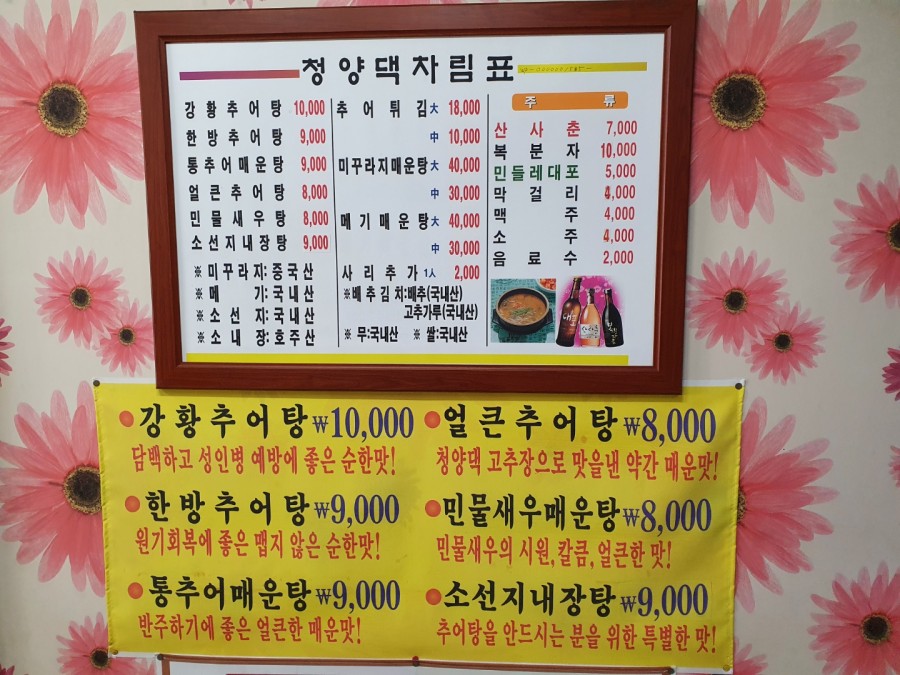 청양댁차림표
강황추어탕 10,000
한방추어탕 9,000
통추어매운탕 9,000
얼큰추어탕 8,000
민물새우탕 8,000
소선지내장탕 9,000
※미꾸라지:중국산
※메 기:국내산
※소 선 지:국내산
※소 내 장:호주산
추어튀김 大 18,000
中 10,000
미꾸라지매운탕 大 40,000
中 30,000
메기매운탕 大 40,000
中 30,000
사리추가 1人 2,000
※배추김치:배추(국내산)
고추가루(국내산)
※무:국내산 ※쌀:국내산
주 류
산사춘 7,000
복분자 10,000
민들레대포 5,000
막걸리 4,000
맥주 4,000
소주 4,000
음료수 2,000
강황추어탕 ₩10,000
담백하고 성인병 예방에 좋은 순한맛!
한방추어탕 ₩9,000
원기회복에 좋은 맵지 않은 순한맛!
통추어매운탕 ₩9,000
반주하기에 좋은 얼큰한 매운맛!
얼큰추어탕 ₩8,000
청양댁 고추장으로 맛을낸 약간 매운맛!
민물새우매운탕 ₩8,000
민물새우의 시원, 칼큼, 얼큰한 맛!
소선지내장탕 ₩9,000
추어탕을 안드시는 분을 위한 특별한 맛!